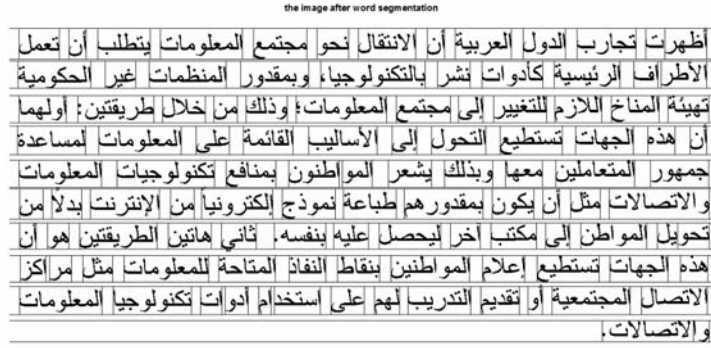 the image after word segmentation
أظهرت تجارب الدول العربية أن الانتقال نحو مجتمع المعلومات يتطلب أن تعمل
الأطراف الرئيسية كأدوات نشر بالتكنولوجيا، وبمقدور المنظمات غير الحكومية
تهيئة المناخ اللازم للتغيير إلى مجتمع المعلومات؛ وذلك من خلال طريقتين: أولهما
أن هذه الجهات تستطيع التحول إلى الأساليب القائمة على المعلومات لمساعدة
جمهور المتعاملين معها وبذلك يشعر المواطنون بمنافع تكنولوجيات المعلومات
والاتصالات مثل أن يكون بمقدورهم طباعة نموذج إلكترونياً من الإنترنت بدلاً من
تحويل المواطن إلى مكتب آخر ليحصل عليه بنفسه. ثاني هاتين الطريقتين هو أن
هذه الجهات تستطيع إعلام المواطنين بنقاط النفاذ المتاحة للمعلومات مثل مراكز
الاتصال المجتمعية أو تقديم التدريب لهم على استخدام أدوات تكنولوجيا المعلومات
والاتصالات.